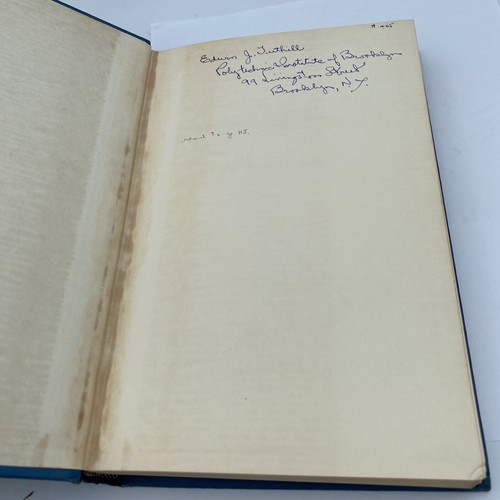 Edwin J. Tuthill
Polytechnic Institute of Brooklyn
99 Livingston Street
Brooklyn, N.Y.